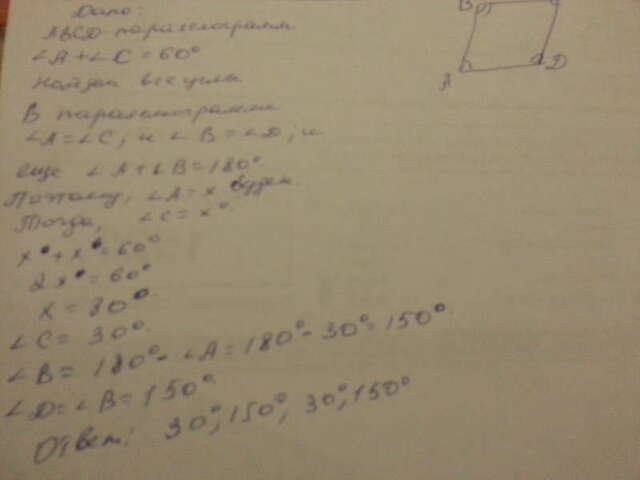 Дано:
ABCD-параллелограмм
∠A+∠C=60°
Найдём все углы
В параллелограмме
∠A=∠C; и ∠B=∠D; и
еще ∠A+∠B=180°
Поэтому, ∠A=x° будем.
Тогда, ∠C=x°.
x°+x°=60°
2x°=60°
x=30°
∠C=30°
∠B=180°-∠A=180°-30°=150°.
∠D=∠B=150°
Ответ: 30°, 150°, 30°, 150°
B
A
D